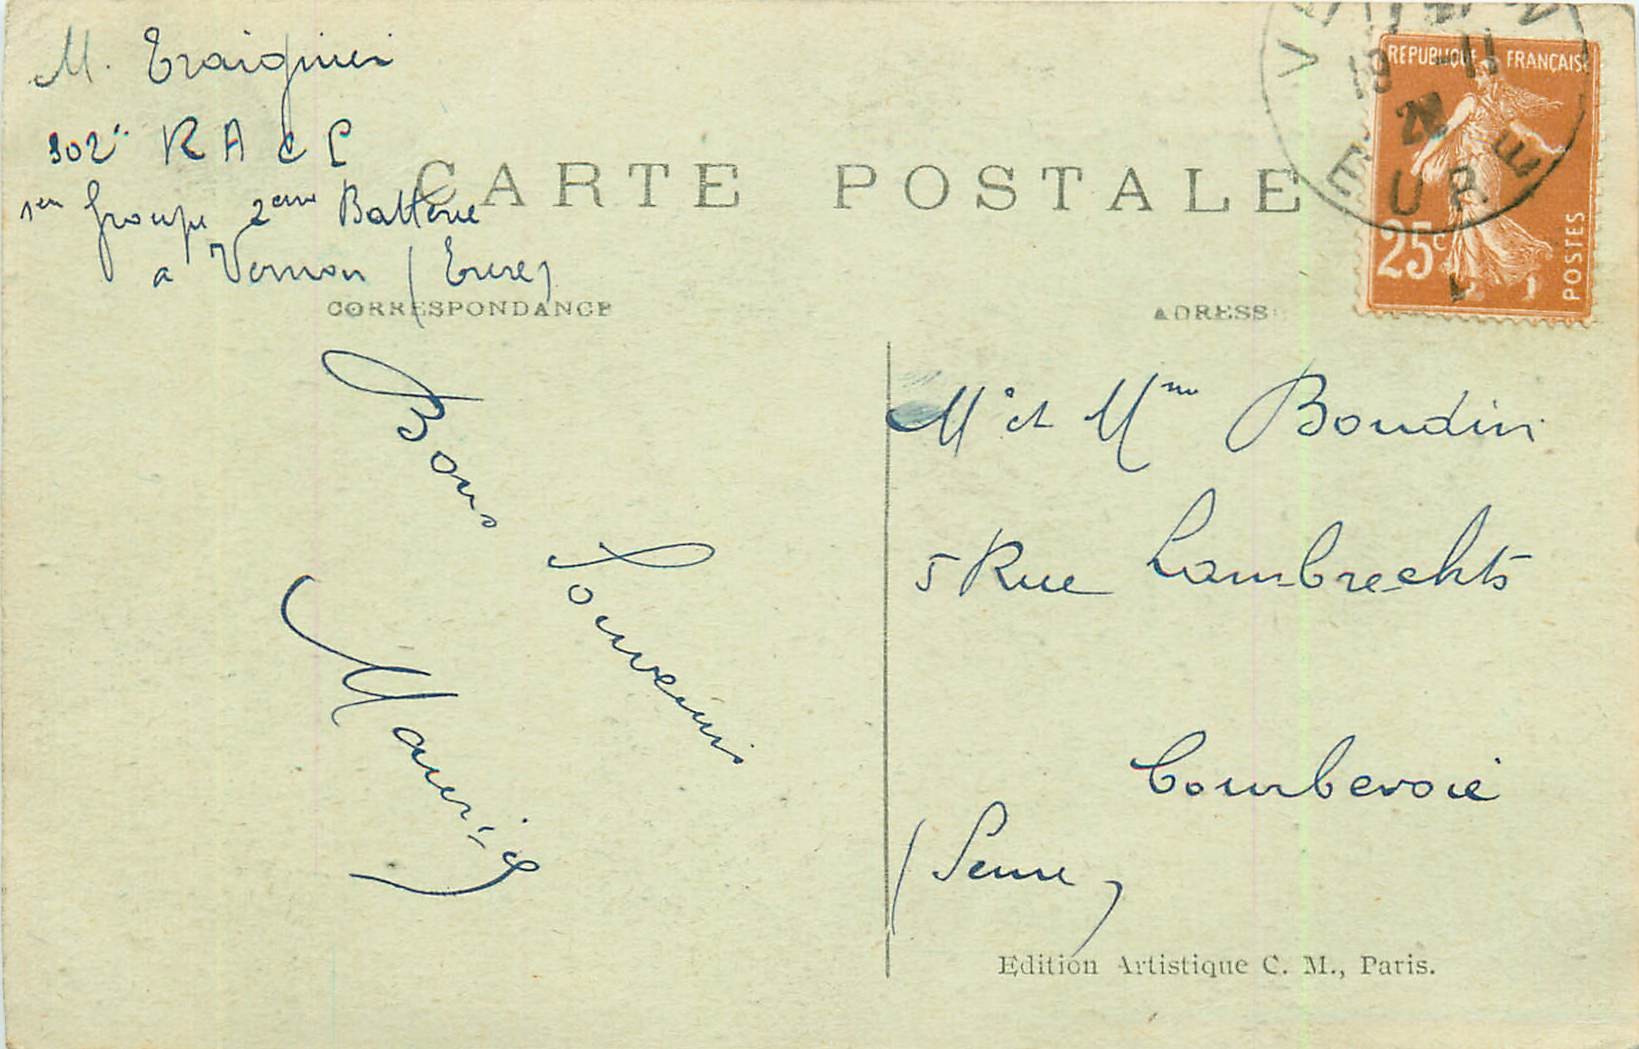 M. Traignier
302e R A C L
1er Groupe 2eme Batterie
a Vernon (Eure)
CARTE POSTALE
CORRESPONDANCE
ADRESSE
Bons Souvenirs
Maurice
Mr et Mme Boudin
5 Rue Lambrechts
Courbevoie
(Seine)
REPUBLIQUE FRANÇAISE
25c
POSTES
19 -11
EURE
Edition Artistique C. M., Paris.